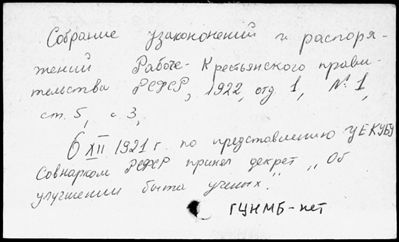 Собрание узаконений и распоря-
жений Рабоче-Крестьянского прави-
тельства РСФСР, 1922, отд 1, № 1,
ст. 5, с 3,
6 XII 1921 г. по представлению ЦЕКУБУ
Совнарком РСФСР принял декрет „Об
улучшении быта ученых".
ГЦНМБ-нет